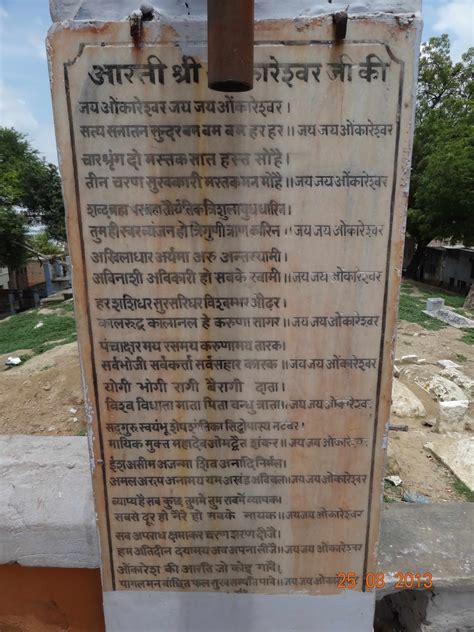 आरती श्री कारेश्वर जी की
जय ओंकारेश्वर जय जय ओंकारेश्वर।
सत्य सनातन सुन्दर बम बम बम हर हर॥ जय जय ओंकारेश्वर
चार श्रृंग दो मस्तक सात हस्त सोहै।
तीन चरण सुखकारी भस्तक मन मोहै॥ जय जय ओंकारेश्वर
शब्दब्रह्म त्रिशुलायुधधारिन
तुम ही स्वर व्यंजन हो त्रिगुणी त्राण कारिन॥ जय जय ओंकारेश्वर
अखिलाधार अर्यमा अरु अन्तरयामी।
अविनाशी अविकारी हो सबके स्वामी॥ जय जय ओंकारेश्वर
हर शशिधर सुरसरिधर विश्वम्भर औढ़र।
कालरूद्र कालानल हे करुणा सागर॥ जय जय ओंकारेश्वर
पंचाक्षर मय रसमय करुणामय तारक।
सर्वभोजी सर्वकर्त्ता सर्वसंहार कारक॥ जय जय ओंकारेश्वर
योगी भोगी रागी बैरागी दाता।
विश्व विधाता माता पिता बन्धु त्राता॥ जय जय ओंकारेश्वर
सदगुरु स्वयंभू नटवर।
मायिक मुक्त महादेव शंकर॥ जय जय ओंकारेश्वर
ईश असीम अजन्मा शिव अनादि निर्मल।
अमल अरूप अनामय अज अखंड अविचल॥ जय जय ओंकारेश्वर
व्याप्य है सब कुछ तुममे तुम सबमें व्यापक।
सबसे दूर हो नेरे हो सबके नायक॥ जय जय ओंकारेश्वर
सब अपराध क्षमाकर चरण शरण दीजै।
हम अतिदीन दयामय अब अपना लीजै॥ जय जय ओंकारेश्वर
ओंकारेश की आरति जो कोइ गावै।
पागल मन वांछित फल सुख सम्पति पावै॥ जय जय ओंकारेश्वर
25 08 2013